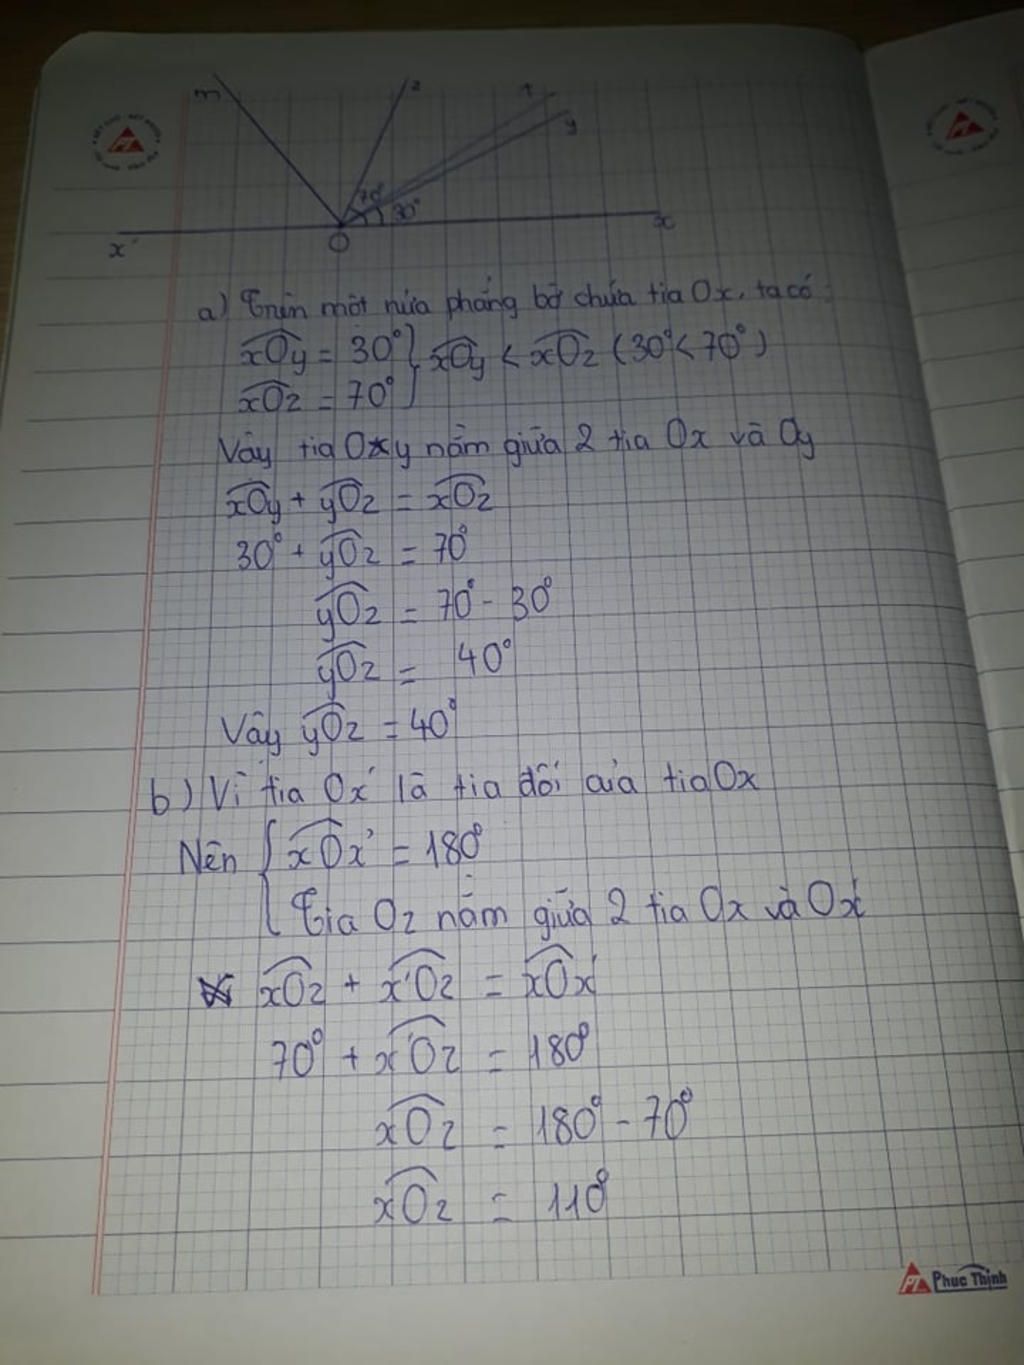 m z t y
70° 30°
x' O x
a) Trên một nửa phẳng bờ chứa tia Ox, ta có:
xOy = 30° } xOy < xOz (30° < 70°)
xOz = 70°
Vậy tia Oy nằm giữa 2 tia Ox và Oy
xOy + yOz = xOz
30° + yOz = 70°
yOz = 70° - 30°
yOz = 40°
Vậy yOz = 40°
b) Vì tia Ox' là tia đối của tia Ox
Nên { xOx' = 180°
Tia Oz nằm giữa 2 tia Ox và Ox'
xOz + x'Oz = xOx'
70° + x'Oz = 180°
x'Oz = 180° - 70°
x'Oz = 110°
PT Phuc Thinh